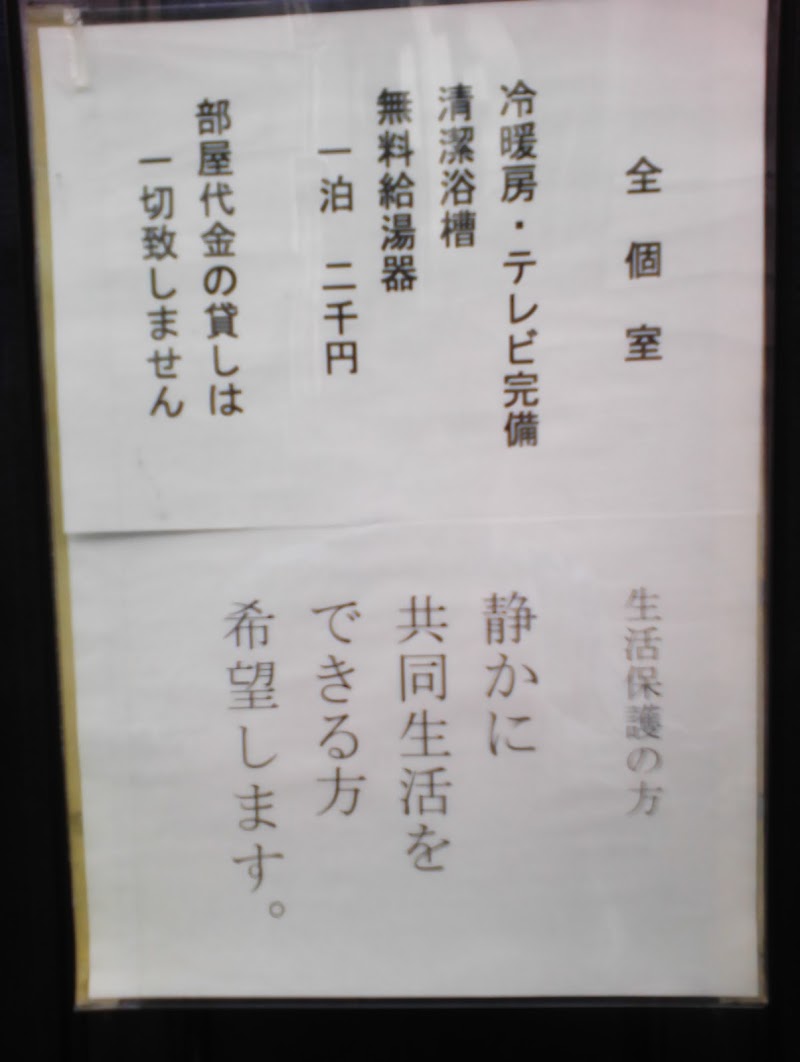 全個室
冷暖房・テレビ完備
清潔浴槽
無料給湯器
一泊 二千円
部屋代金の貸しは
一切致しません
生活保護の方
静かに
共同生活を
できる方
希望します。